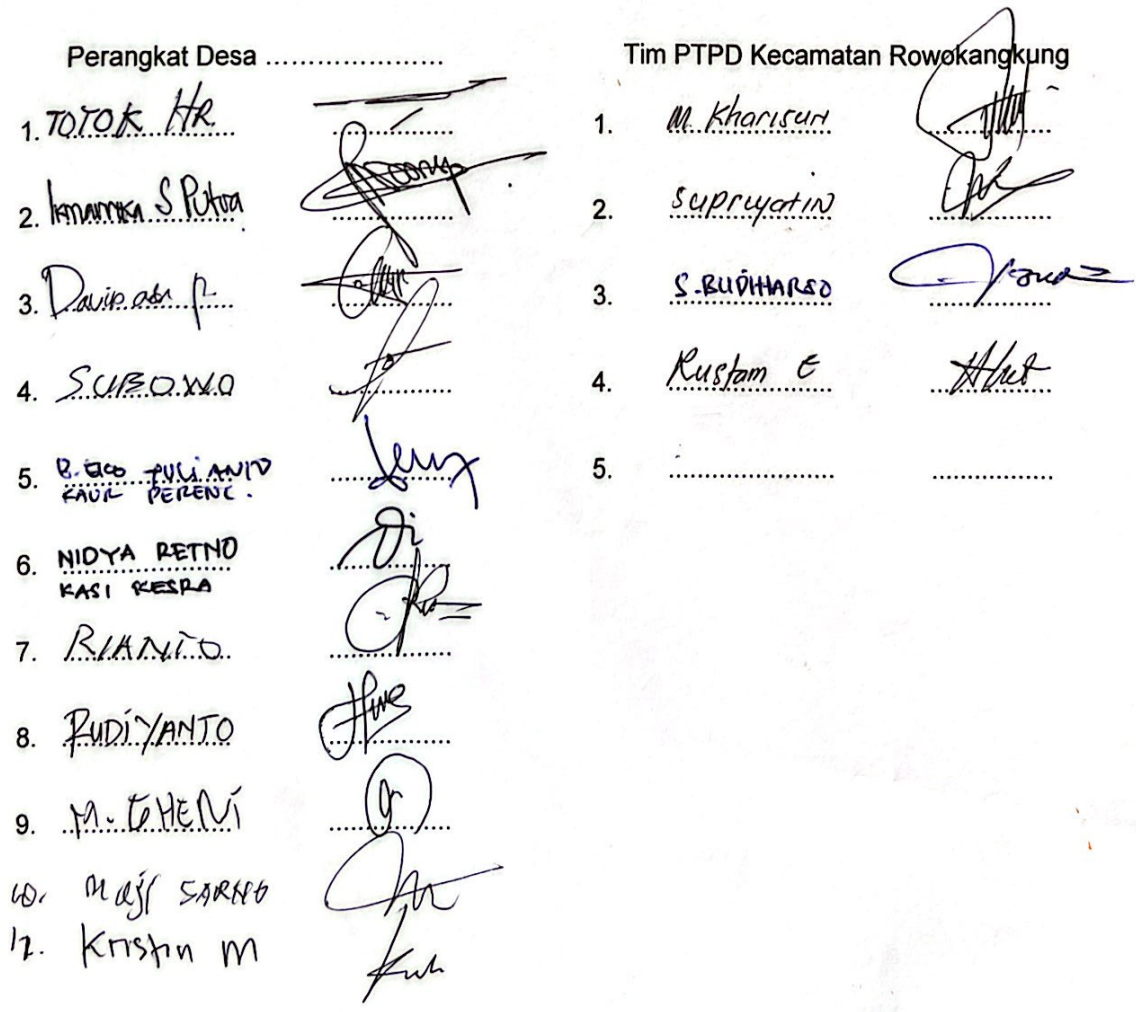 Perangkat Desa ......................
1. TOTOK HR.
2. S Putra
3.
4. SUBOWO
5. B. EKO YULIANTO
KAUR PERENC.
6. NIDYA RETNO
KASI KESRA
7. RIANTO
8. RUDIYANTO
9. M. GHENI
10.
Kristin M
Tim PTPD Kecamatan Rowokangkung
1. M. Kharisun
2. Supriyatin
3. S. BUDIHARSO
4. Rustam E
5. ......................